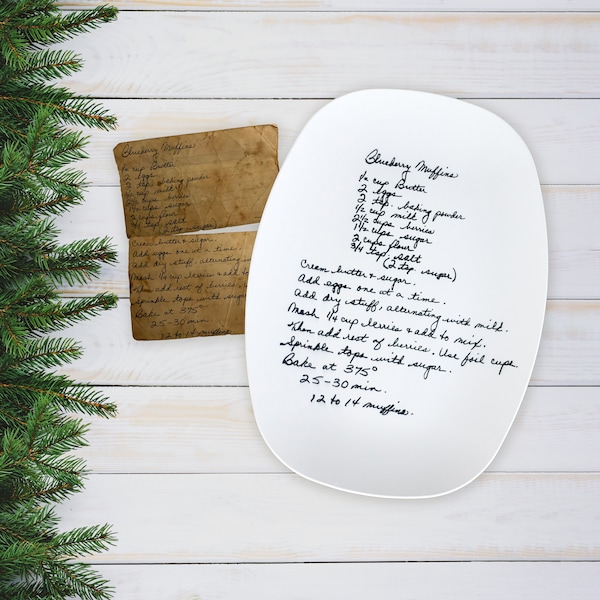 Blueberry Muffins
½ cup Butter
2 eggs
2 tsp. baking powder
½ cup milk
2½ cups berries
1½ cups sugar
2 cups flour
3/4 tsp. salt
(2 tsp sugar)
Cream butter & sugar.
Add eggs one at a time.
Add dry stuff, alternating with
Mash 1/4 cup berries & add to
Then add rest of berries.
Sprinkle tops with sugar
Bake at 375°
25-30 min.
12 to 14 muffins
Blueberry Muffins
½ cup Butter
2 eggs
2 tsp. baking powder
½ cup milk
2½ cups berries
1½ cups sugar
2 cups flour
3/4 tsp. salt
(2 tsp sugar)
Cream butter & sugar.
Add eggs one at a time.
Add dry stuff, alternating with milk.
Mash 1/4 cup berries & add to mix.
Then add rest of berries. Use foil cups.
Sprinkle tops with sugar.
Bake at 375°
25-30 min.
12 to 14 muffins.